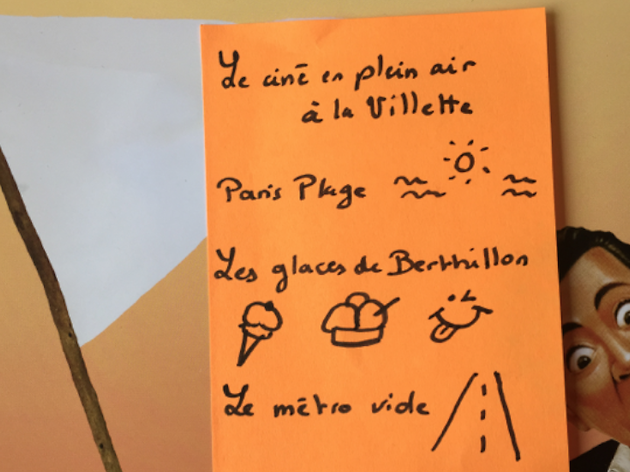 Le ciné en plein air
à la Villette
Paris Plage
Les glaces de Berthillon
Le métro vide